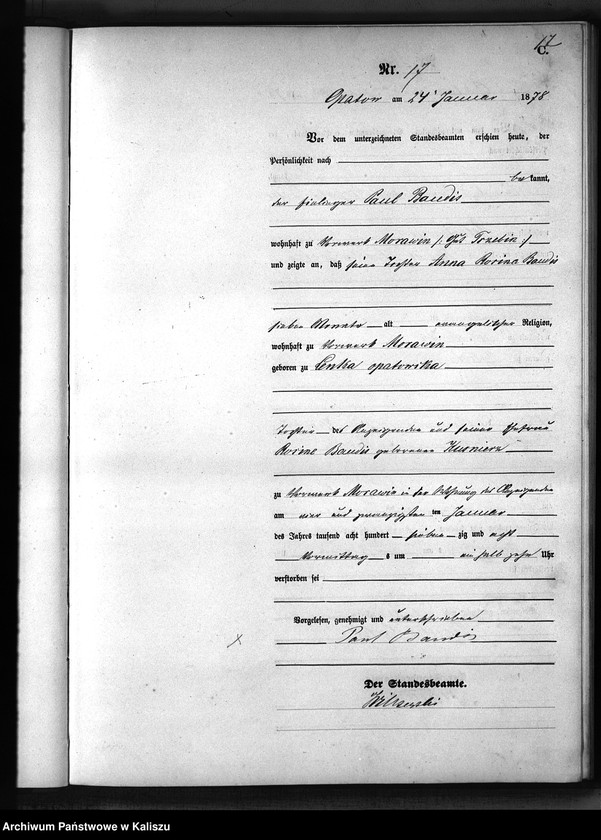 17
C.
Nr. 17
Opatow am 24 Januar 1878
Vor dem unterzeichneten Standesbeamten erschien heute, der
Persönlichkeit nach
bekannt,
der Paul Baudis
wohnhaft zu Vorwerk Morawin /: Gut Trzebin :/
und zeigte an, daß seine Tochter Anna Rosina Baudis
sieben Monate alt evangelischer Religion,
wohnhaft zu Vorwerk Morawin
geboren zu Lenka opatowska
Tochter des Anzeigenden und seiner Ehefrau
Rosine Baudis geborenen
zu Vorwerk Morawin in der Wohnung des Anzeigenden
am vier und zwanzigsten ten Januar
des Jahres tausend acht hundert sieben zig und acht
Vormittag s um ein halb zehn Uhr
verstorben sei
Vorgelesen, genehmigt und unterschrieben
Paul Baudis
x
Der Standesbeamte.
Archiwum Państwowe w Kaliszu